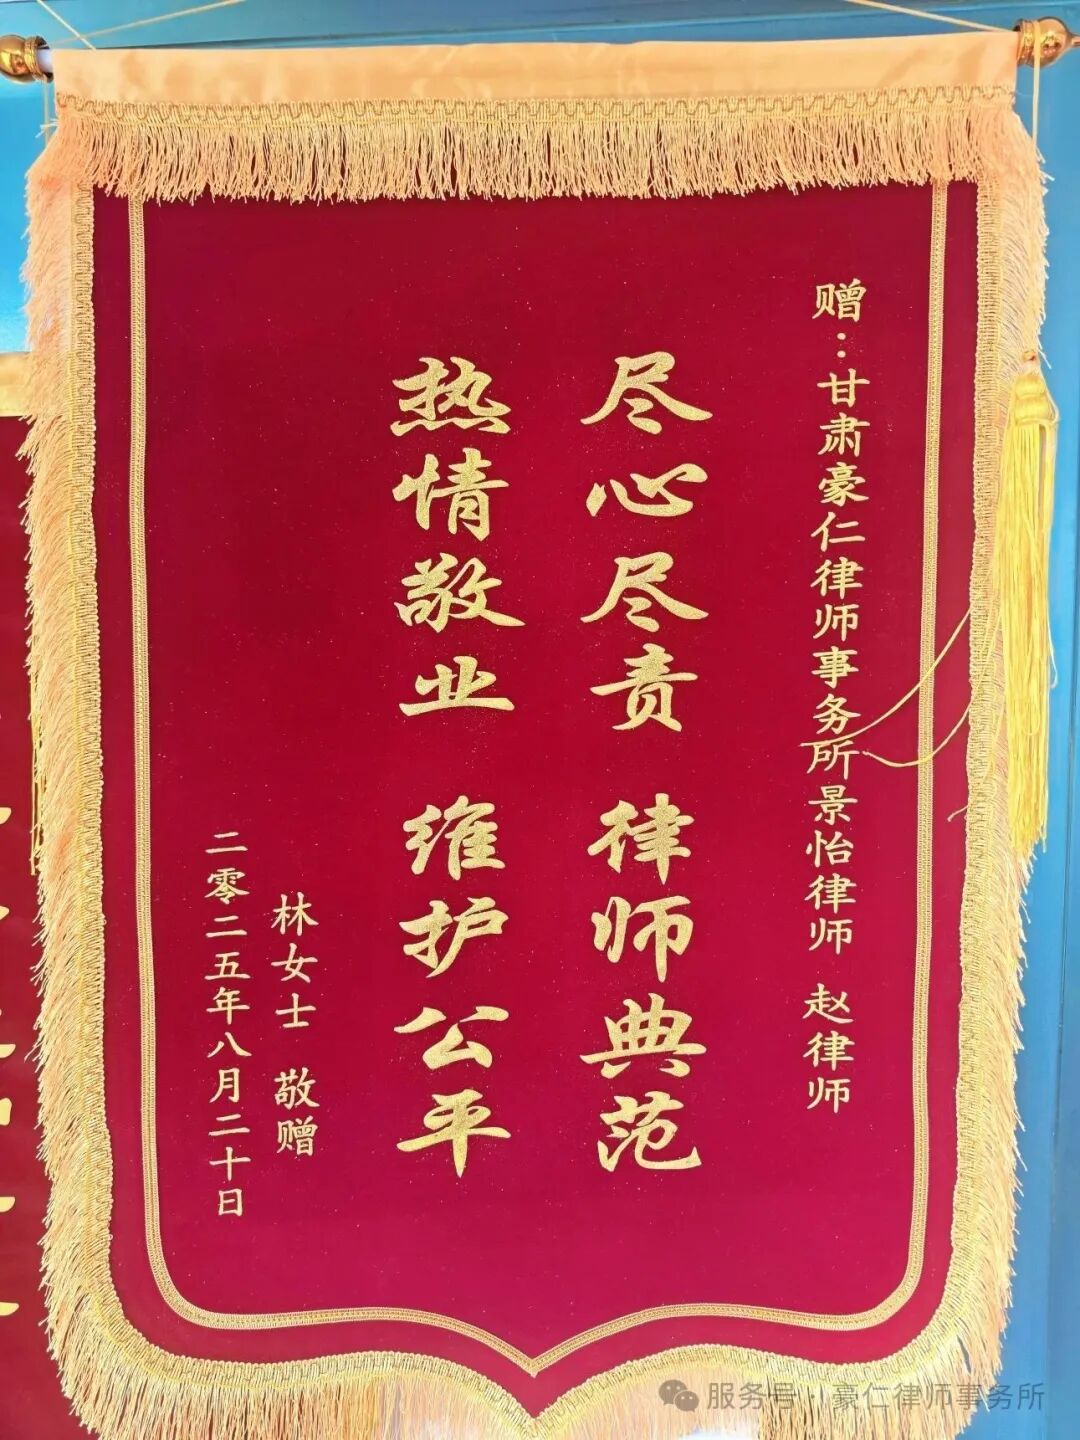 赠：甘肃豪仁律师事务所景怡律师 赵律师
尽心尽责 律师典范
热情敬业 维护公平
林女士 敬赠
二零二五年八月二十日
服务号·豪仁律师事务所